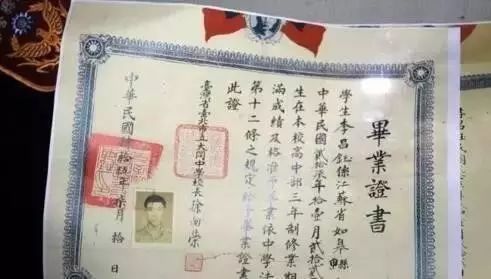 畢業證書
學生李昌鈺係江蘇省如皋縣
中華民國貳拾柒年拾壹月貳拾貳
生在本校高中部三年制修業期
滿成績及格准予畢業依中學法
第十二條之規定給予畢業證書
此證
臺灣省臺北市立大同中學校長徐
中華民國 年 月拾 日